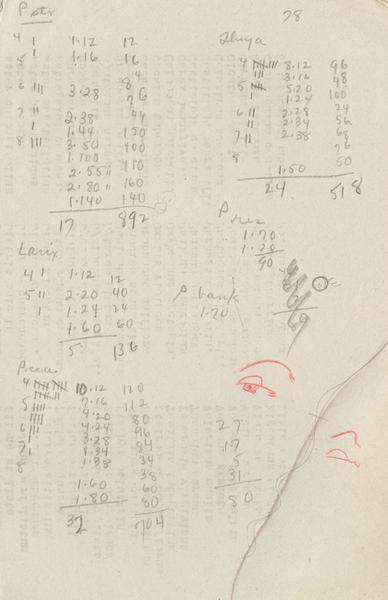 78
P str
4 1 1.12 12
5 1 1.16 16
4
6 111 3.28 84
76
7 11 2.38
1 1.44 150
8 111 3.50 100
1.100
2.55 110
2.80 160
1.140 140
17 892
Larix
4 1 1.12 12
5 11 2.20 40
1 1.24 24
1.60 60
5 136
Picea
4 10.12 120
5 7.16 112
4.20 80
6 4.24 96
3.28 84
7 1.34 34
8 1.38 38
1.60 60
1.80 80
32 704
Thuya
4 8.12 96
3.16 48
5 5.20 100
1.24 24
6 11 2.28 56
11 2.34 68
7 11 2.38 76
8
1.50 50
24 518
P res
1.70
1.20
90
69
P bank
1.70
27
17
5
31
80